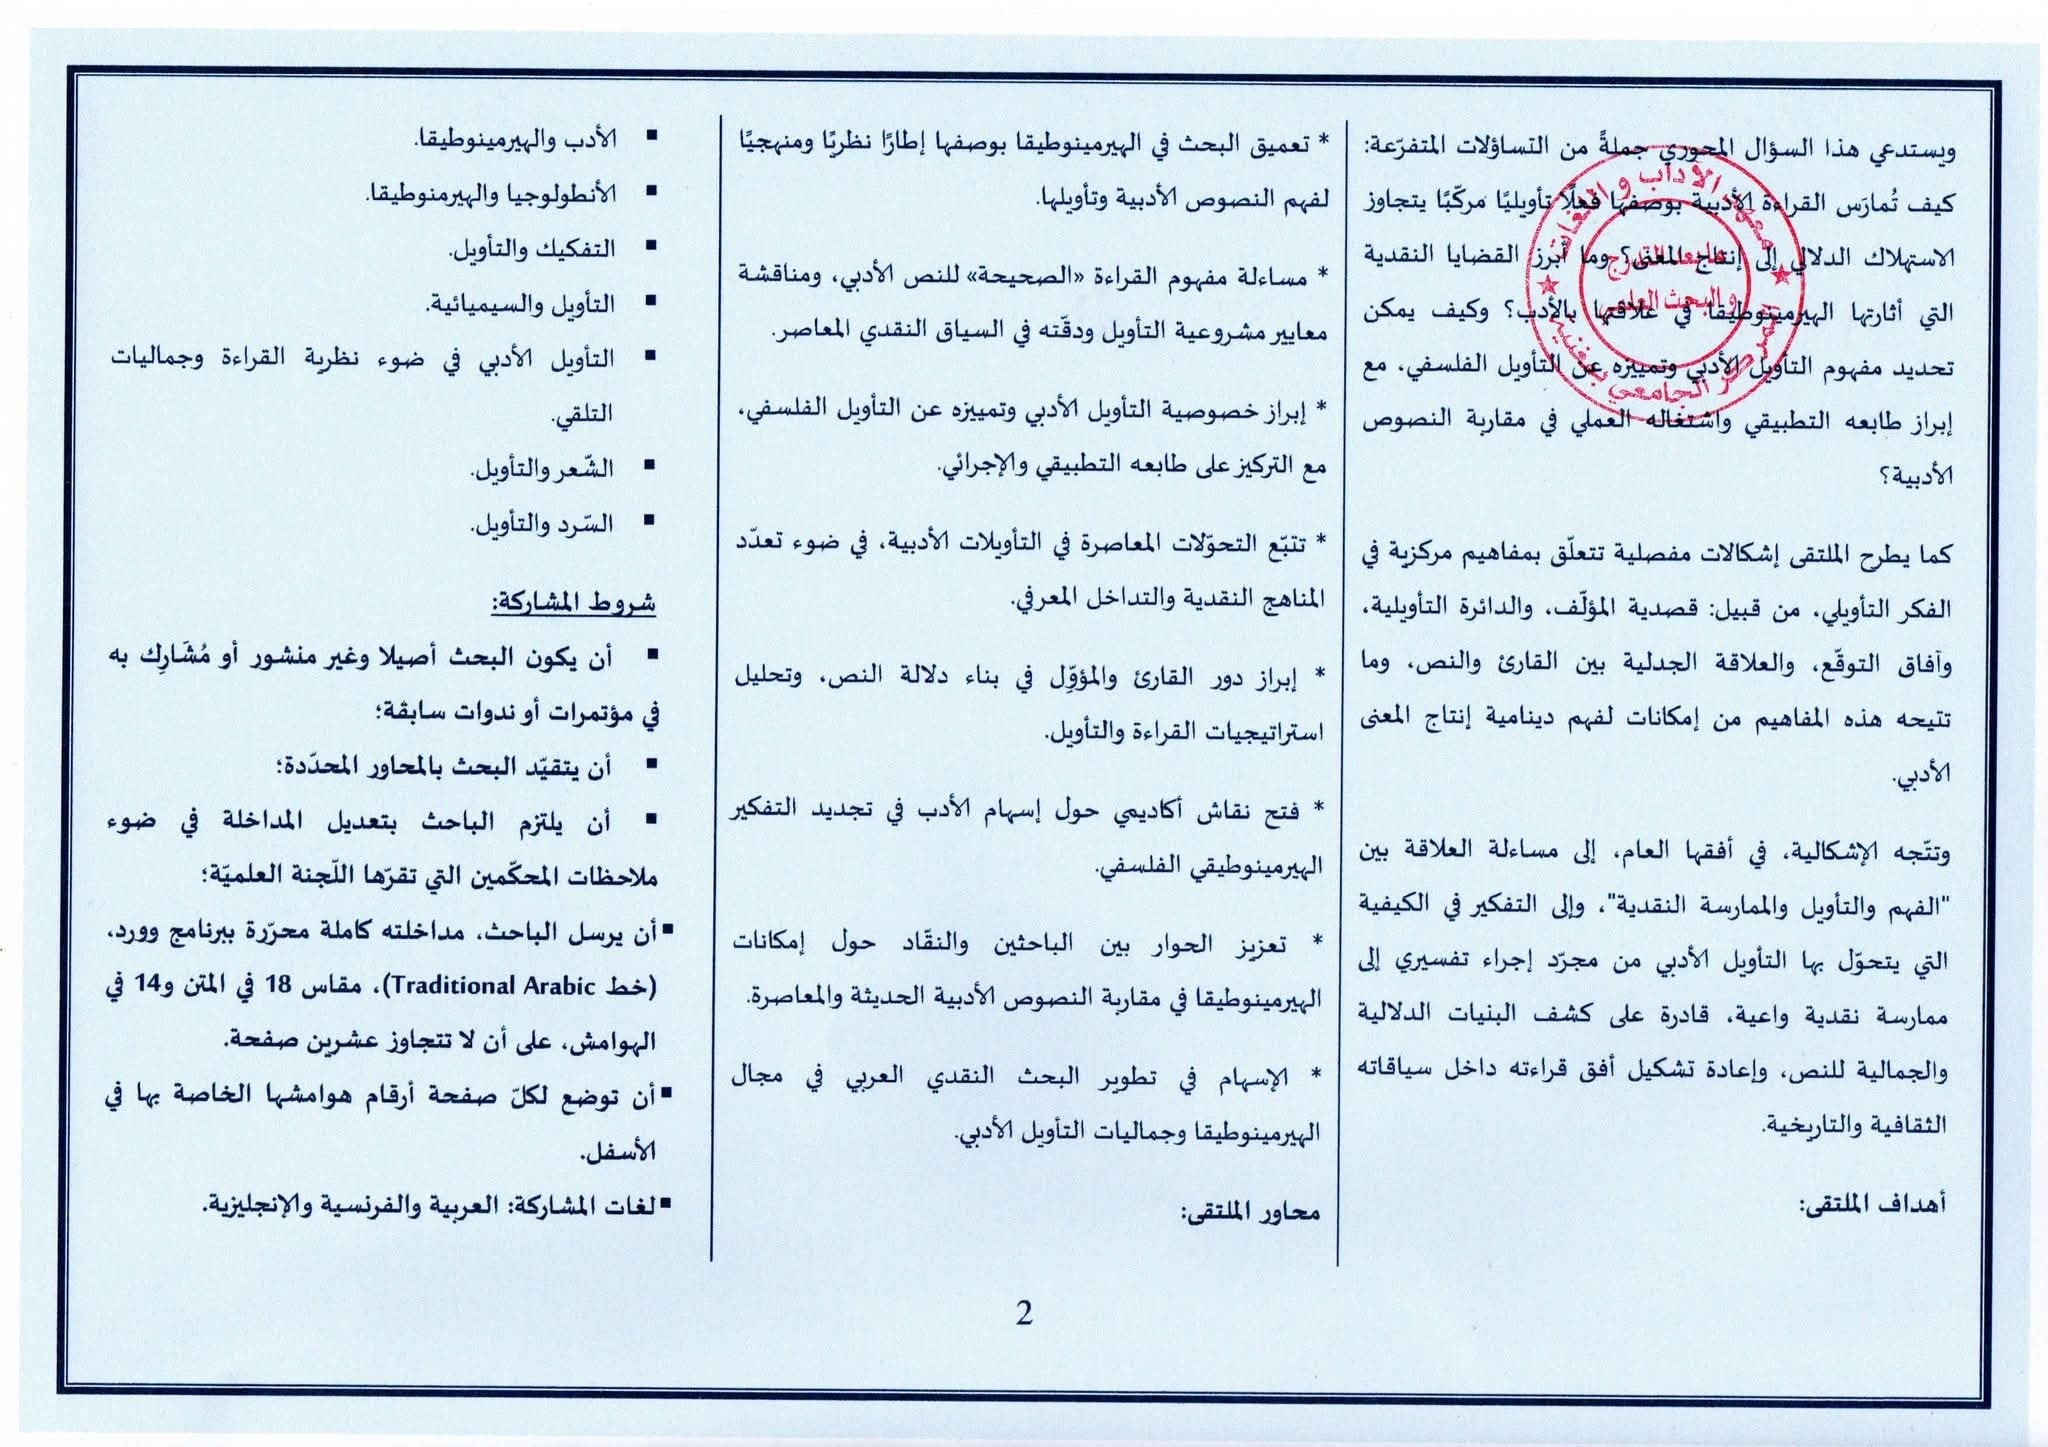 ويستدعي هذا السؤال المحوري جملةً من التساؤلات المتفرّعة:
كيف تُمارَس القراءة الأدبية بوصفها فعلًا تأويليًا مركّبًا يتجاوز
الاستهلاك الدلالي إلى إنتاج المعنى؟ وما أبرز القضايا النقدية
التي أثارتها الهيرمينوطيقا في علاقتها بالأدب؟ وكيف يمكن
تحديد مفهوم التأويل الأدبي وتمييزه عن التأويل الفلسفي، مع
إبراز طابعه التطبيقي واشتغاله العملي في مقاربة النصوص
الأدبية؟
كما يطرح الملتقى إشكالات مفصلية تتعلّق بمفاهيم مركزية في
الفكر التأويلي، من قبيل: قصدية المؤلّف، والدائرة التأويلية،
وآفاق التوقّع، والعلاقة الجدلية بين القارئ والنص، وما
تتيحه هذه المفاهيم من إمكانات لفهم دينامية إنتاج المعنى
الأدبي.
وتتّجه الإشكالية، في أفقها العام، إلى مساءلة العلاقة بين
"الفهم والتأويل والممارسة النقدية"، وإلى التفكير في الكيفية
التي يتحوّل بها التأويل الأدبي من مجرّد إجراء تفسيري إلى
ممارسة نقدية واعية، قادرة على كشف البنيات الدلالية
والجمالية للنص، وإعادة تشكيل أفق قراءته داخل سياقاته
الثقافية والتاريخية.
أهداف الملتقى:
* تعميق البحث في الهيرمينوطيقا بوصفها إطارًا نظريًا ومنهجيًا
لفهم النصوص الأدبية وتأويلها.
* مساءلة مفهوم القراءة «الصحيحة» للنص الأدبي، ومناقشة
معايير مشروعية التأويل ودقّته في السياق النقدي المعاصر.
* إبراز خصوصية التأويل الأدبي وتمييزه عن التأويل الفلسفي،
مع التركيز على طابعه التطبيقي والإجرائي.
* تتبّع التحوّلات المعاصرة في التأويلات الأدبية، في ضوء تعدّد
المناهج النقدية والتداخل المعرفي.
* إبراز دور القارئ والمؤوِّل في بناء دلالة النص، وتحليل
استراتيجيات القراءة والتأويل.
* فتح نقاش أكاديمي حول إسهام الأدب في تجديد التفكير
الهيرمينوطيقي الفلسفي.
* تعزيز الحوار بين الباحثين والنقّاد حول إمكانات
الهيرمينوطيقا في مقاربة النصوص الأدبية الحديثة والمعاصرة.
* الإسهام في تطوير البحث النقدي العربي في مجال
الهيرمينوطيقا وجماليات التأويل الأدبي.
محاور الملتقى:
▪ الأدب والهيرمينوطيقا.
▪ الأنطولوجيا والهيرمنوطيقا.
▪ التفكيك والتأويل.
▪ التأويل والسيميائية.
▪ التأويل الأدبي في ضوء نظرية القراءة وجماليات
التلقي.
▪ الشّعر والتأويل.
▪ السّرد والتأويل.
شروط المشاركة:
▪ أن يكون البحث أصيلا وغير منشور أو مُشَارِك به
في مؤتمرات أو ندوات سابقة؛
▪ أن يتقيّد البحث بالمحاور المحدّدة؛
▪ أن يلتزم الباحث بتعديل المداخلة في ضوء
ملاحظات المحكّمين التي تقرّها اللّجنة العلميّة؛
▪ أن يرسل الباحث، مداخلته كاملة محرّرة ببرنامج وورد،
(خط Traditional Arabic)، مقاس 18 في المتن و14 في
الهوامش، على أن لا تتجاوز عشرين صفحة.
▪ أن توضع لكلّ صفحة أرقام هوامشها الخاصة بها في
الأسفل.
▪ لغات المشاركة: العربية والفرنسية والإنجليزية.
2
معهد الآداب و اللغات
والبحث العلمي
المركز الجامعي بمغنية